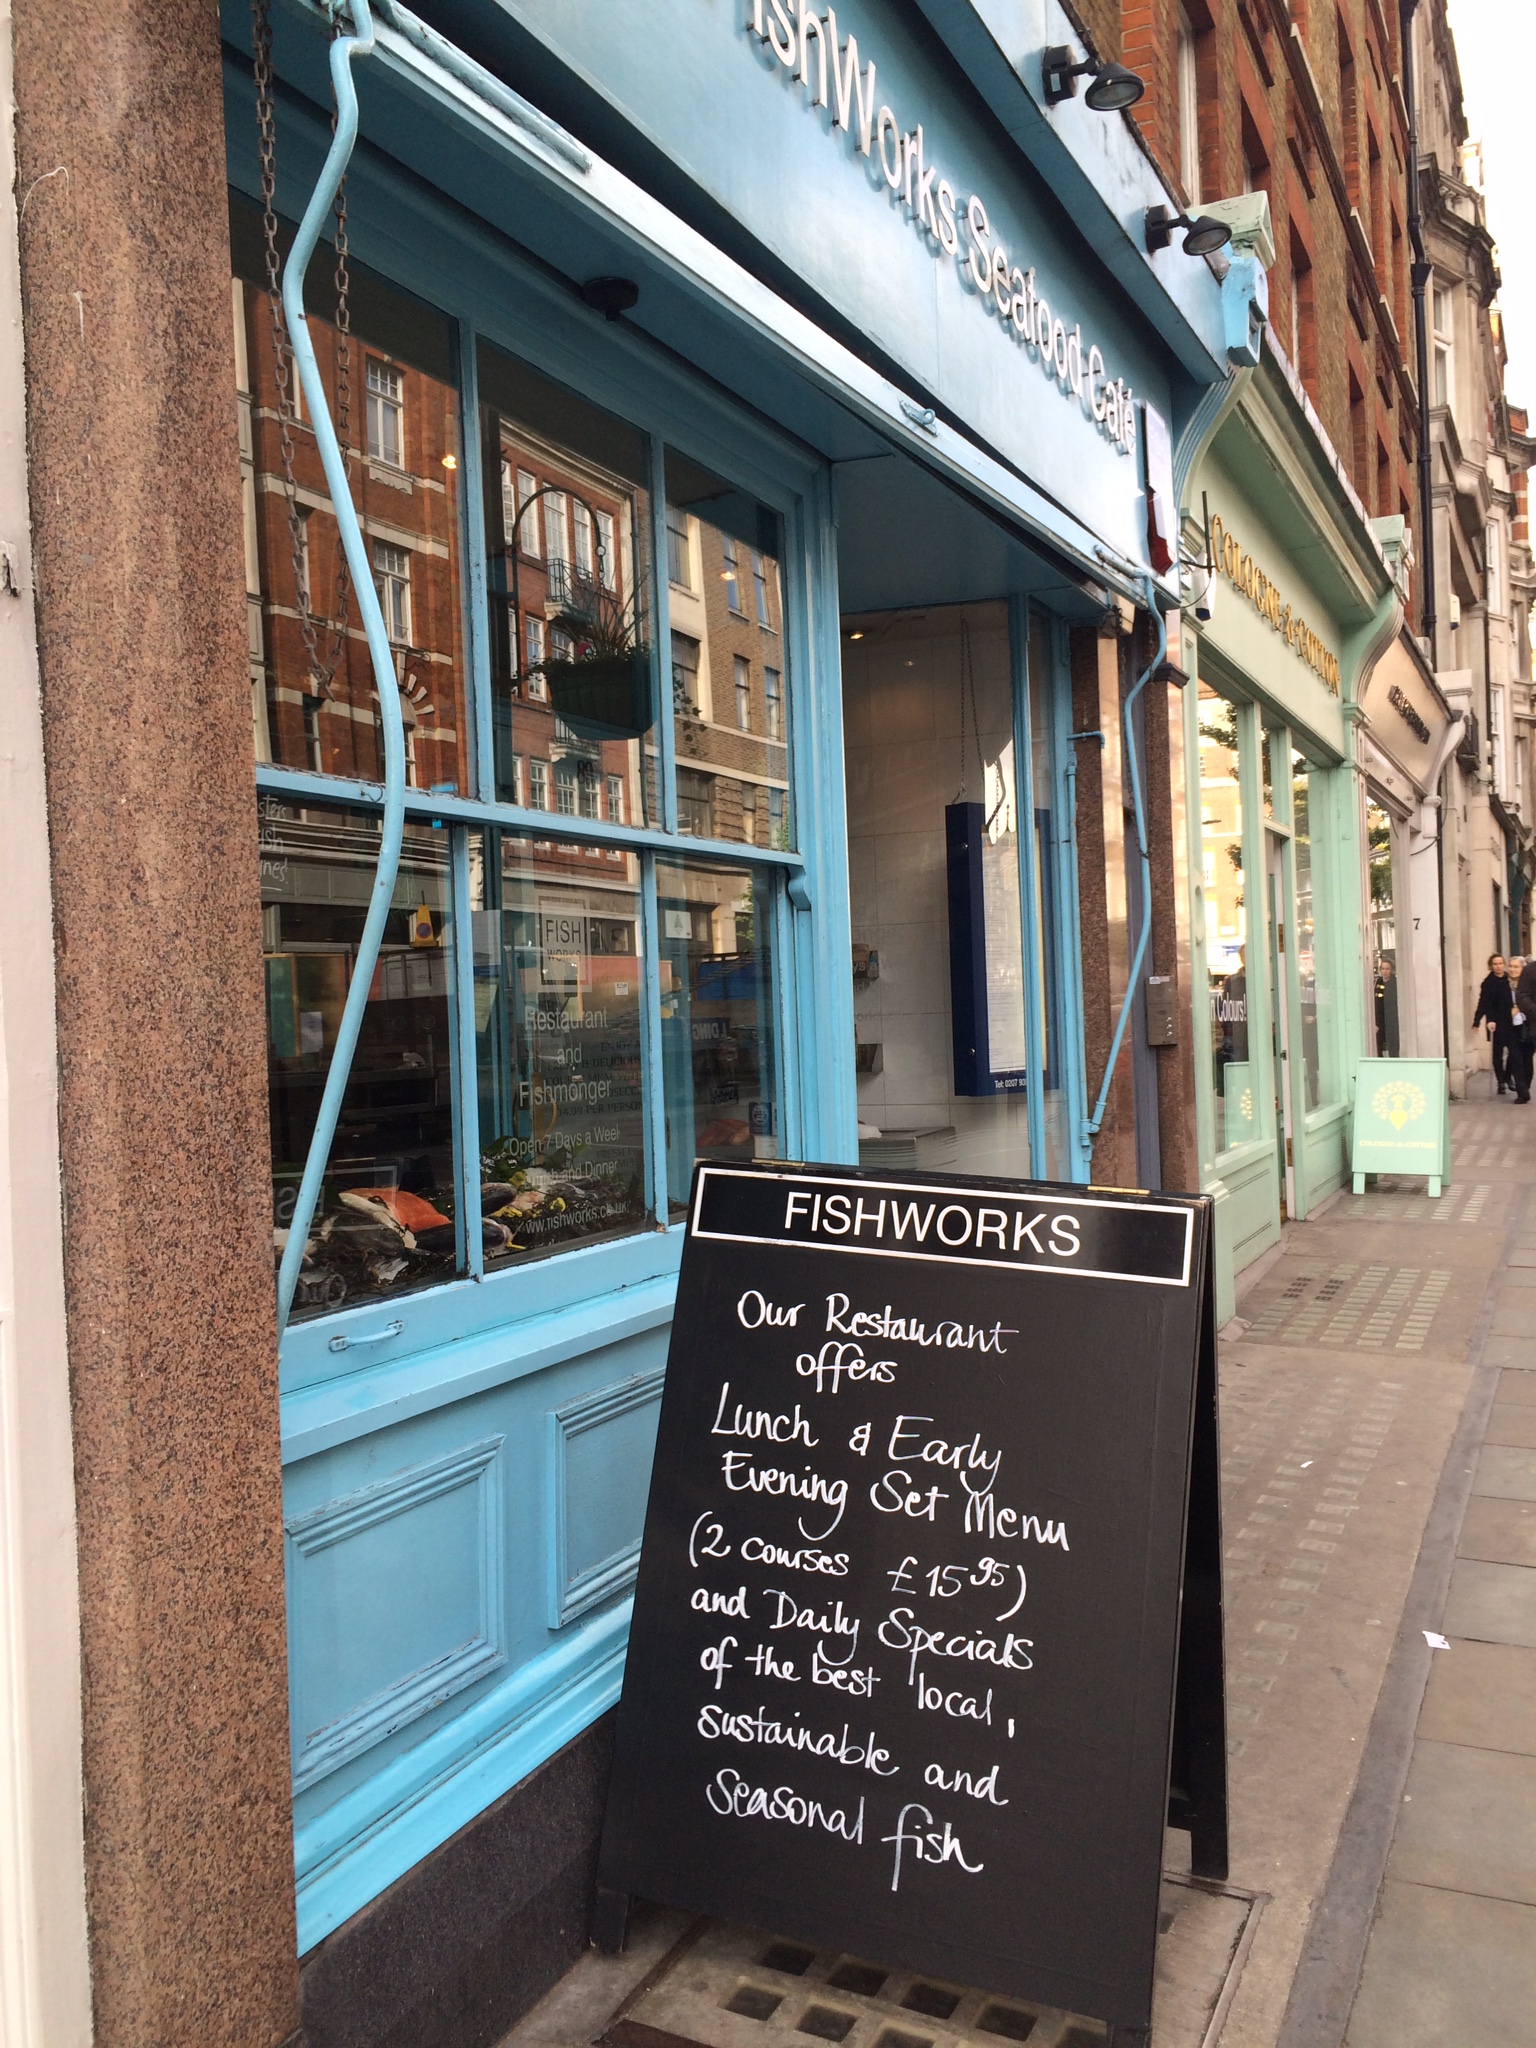 Works Seafood Café
COLOGNE & COTTON
7
FISH
WORKS
Restaurant
and
Fishmonger
Open 7 Days a Week
and Dinner
www.fishworks.co.uk
Colours!
COLOGNE & COTTON
FISHWORKS
Our Restaurant
offers
Lunch & Early
Evening Set Menu
(2 courses £15.95)
and Daily Specials
of the best local,
sustainable and
seasonal fish